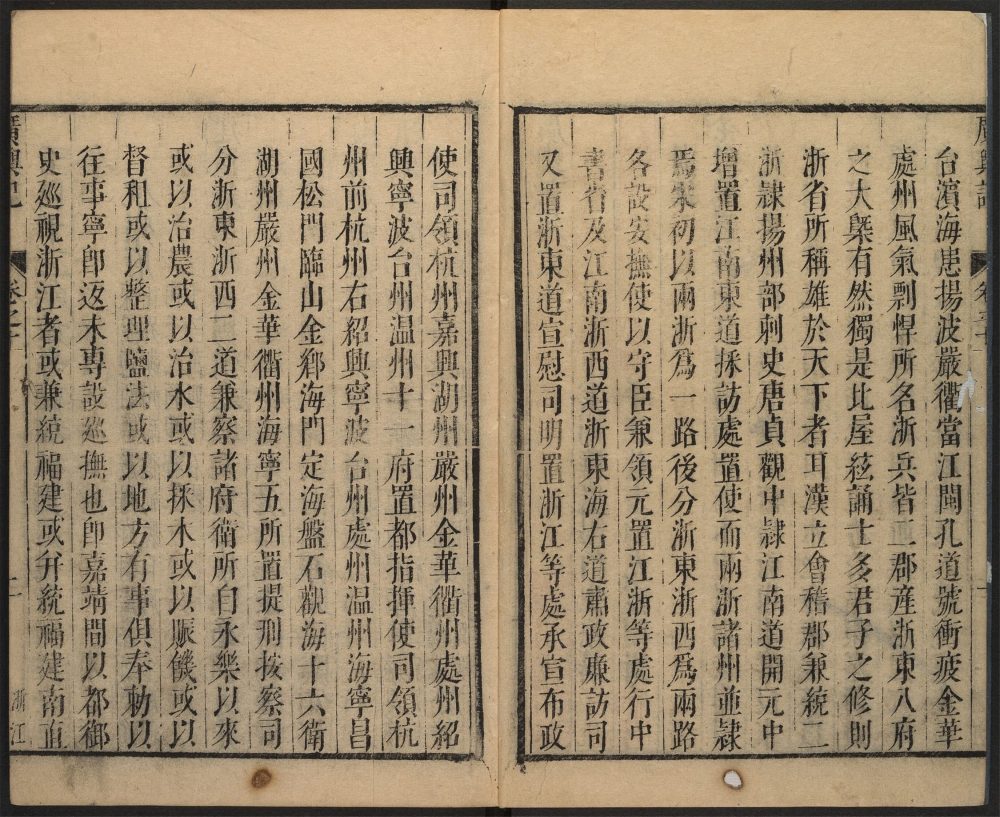 廣輿記
台濵海患揚波嚴衢當江閩孔道號衝疲金華
處州風氣剽悍所名浙兵皆二郡産浙東八府
之大槩有然獨是比屋絃誦士多君子之修則
浙省所稱雄於天下者耳漢立會稽郡兼統二
浙隷揚州部刺史唐貞觀中隷江南道開元中
增置江南東道採訪處置使而兩浙諸州並隷
焉宋初以兩浙爲一路後分浙東浙西爲兩路
各設安撫使以守臣兼領元置江浙等處行中
書省及江南浙西道浙東海右道肅政廉訪司
又置浙東道宣慰司明置浙江等處承宣布政
使司領杭州嘉興湖州嚴州金華衢州處州紹
興寧波台州温州十一府置都指揮使司領杭
州前杭州右紹興寧波台州處州温州海寧昌
國松門臨山金鄉海門定海盤石觀海十六衛
湖州嚴州金華衢州海寧五所置提刑按察司
分浙東浙西二道兼察諸府衛所自永樂以來
或以治農或以治水或以採木或以賑饑或以
督租或以整理鹽法或以地方有事俱奉勅以
往事寧卽返未專設廵撫也卽嘉靖間以都御
史廵視浙江者或兼統福建或幷統福建南直
廣輿記
浙江